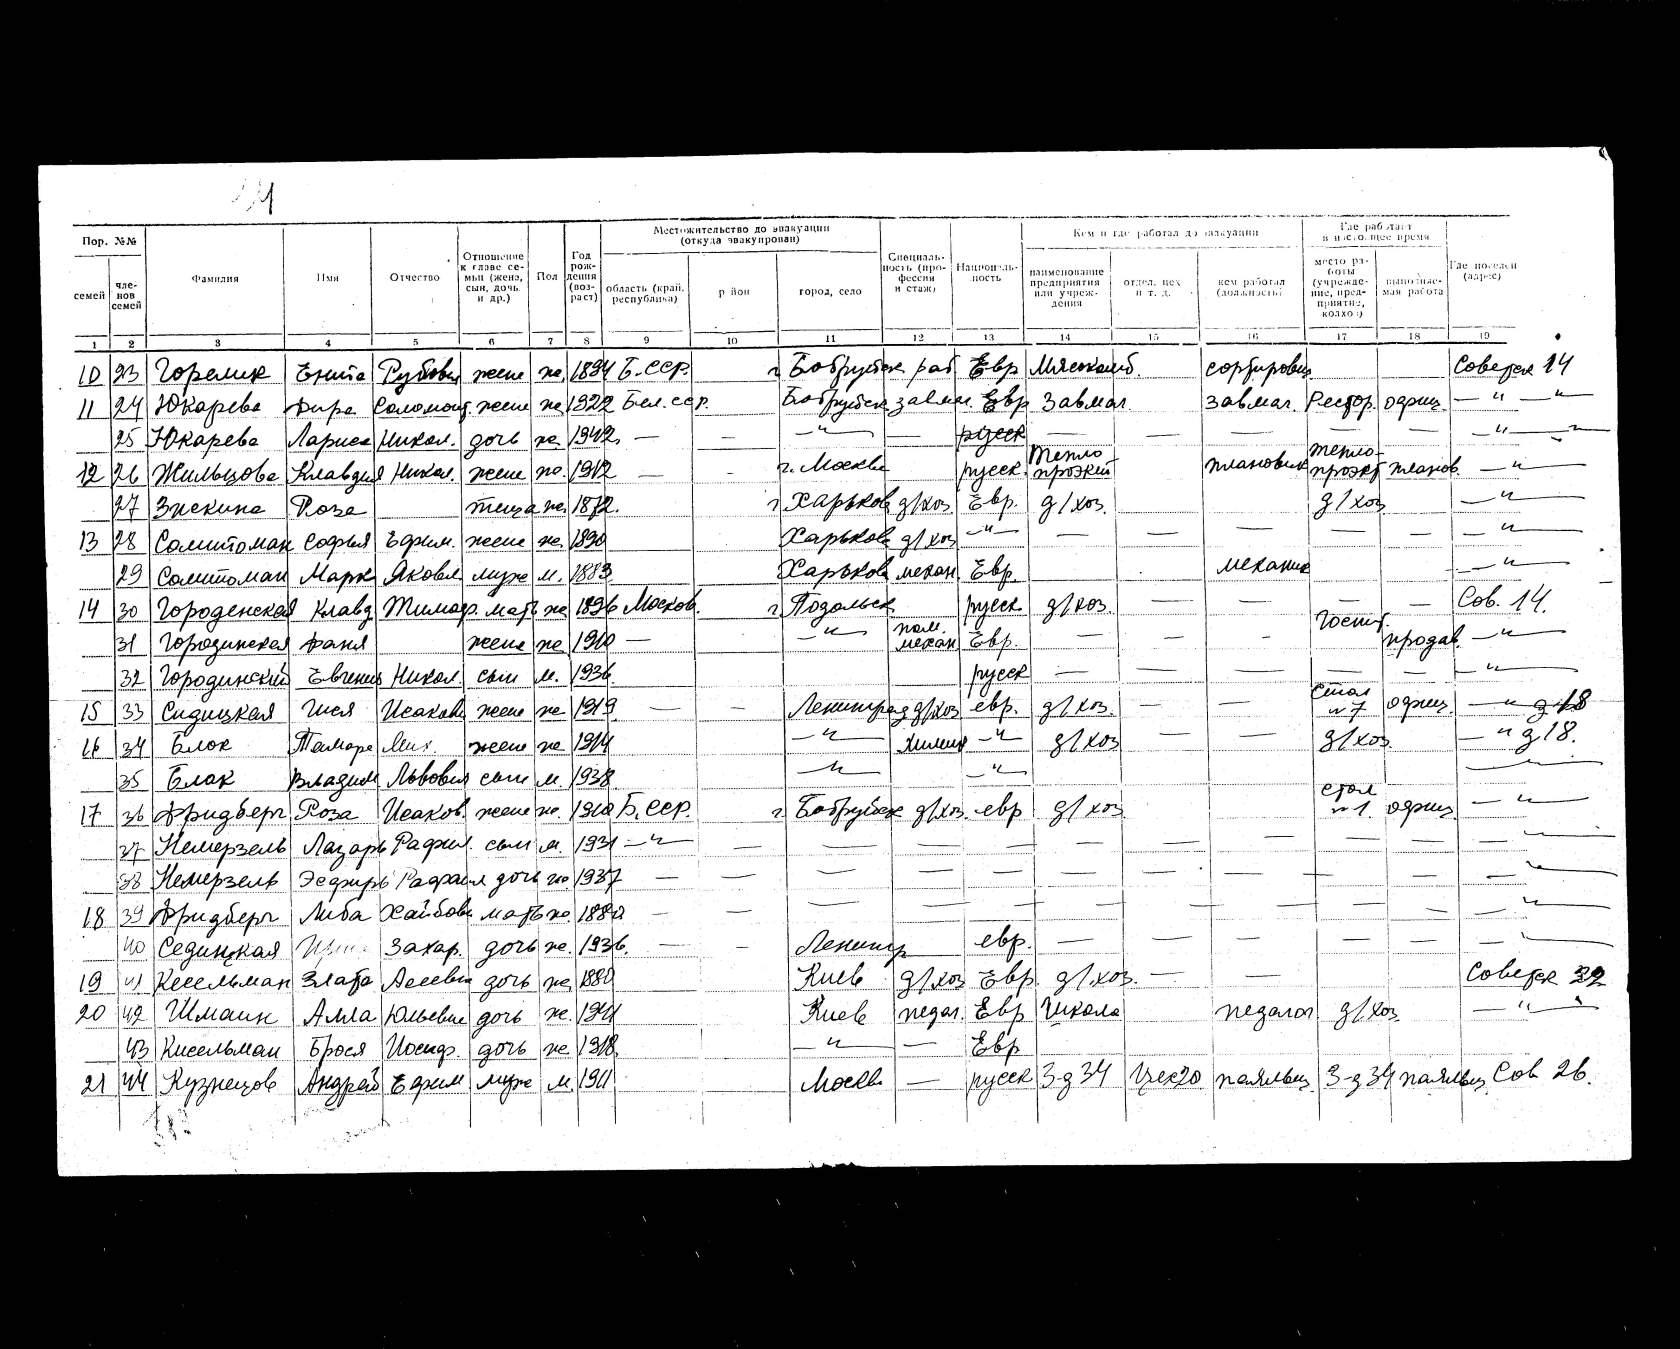 Пор. №№
Местожительство до эвакуации (откуда эвакуирован)
Кем и где работал до эвакуации
Где работает в настоящее время
семей
членов семей
Фамилия
Имя
Отчество
Отношение к главе семьи (жена, сын, дочь и др.)
Пол
Год рождения (возраст)
область (край, республика)
район
город, село
Специальность (профессия и стаж)
Национальность
наименование предприятия или учреждения
отдел, цех и т. д.
кем работал (должность)
место работы (учреждение, предприятие, колхоз)
выполняемая работа
Где поселен (адрес)
1 2 3 4 5 6 7 8 9 10 11 12 13 14 15 16 17 18 19
10 23 Горелик Рубовн жена ж. 1894 Б. сср. г. Бобруйск раб Евр Мяскомб. сортировщ Советск 14
11 24 Юкарева Фира Соломон. жена ж 1922 Бел. сср. Бобруйск завмаг. Евр Завмаг. Завмаг. Рестор. офиц. — " — — " —
25 Юкарева Лариса Никол. дочь ж. 1942. — — — " — — русск — — — — — — " —
12 26 Жильцова Клавдия Никол. жена ж. 1912 — - г. Москва русск. Тепло проэкт плановик тепло-проэкт планов. — " —
27 Роза теща ж. 1872. г. Харьков д/хоз Евр. д/хоз. д/хоз — " —
13 28 Солитоман Софья Ефим. жена ж. 1890 Харьков д/хоз — " — — — — — — " —
29 Солитоман Марк Яковл муж м. 1883 Харьков механ. Евр. механик — " —
14 30 Городенская Клавд Тимоф. мать ж. 1896 Москов. г. Подольск русск д/хоз. — — — — Сов. 14.
31 Городинская Фаня жена ж 1910 — — " — пом. механ Евр. — — - Гостт. продав. — " —
32 Городинский Евгений Никол. сын м. 1936 русск — — — — — — " —
15 33 Сидицкая Исаковн жена ж 1919 — — Ленинград д/хоз евр. д/хоз. — — стол №7 офиц. — " — д 18
16 34 Блок Тамара Мих. жена ж 1914 — " — химик — " — д/хоз — — д/хоз. — " д 18.
35 Блак Владим Львович сын м. 1938 — " — — " —
17 36 Фридберг Роза Исаков. жена ж. 1910 Б. сср. г. Бобруйск д/хоз. евр д/хоз стол №1. офиц. — " —
37 Немерзель Лазарь Рафил. сын м. 1931 — " — — — — — — — — — — — " —
38 Немерзель Эсфирь Рафаил дочь ж 1937 — — — — — — — — — — — " —
18 39 Фридберг Либа Хаибовн мать ж. 1880 — — — — — — — — — — — " —
40 Сединцкая Захар. дочь ж. 1936. — — Ленингр евр. — — — — — — " —
19 41 Кесельман Злата дочь ж 1880 Киев д/хоз Евр д/хоз. — — Советск 32
20 42 Шмаин Алла Юльевна дочь ж. 1911 Киев педаг. Евр Школа педагог д/хоз — " —
43 Кисельман Брося Иосиф. дочь ж 1918. — " — — Евр
21 44 Кузнецов Андрей Ефим муж м. 1911 Москв — русск З-д 34 Цех 20 паяльщ. З-д 34 паяльщ Сов 26.